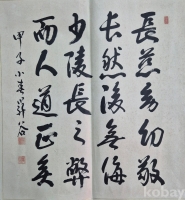 長慈幼幼敬
長然後無侮
少陵長之弊
而人道正矣
甲子小春
kobay